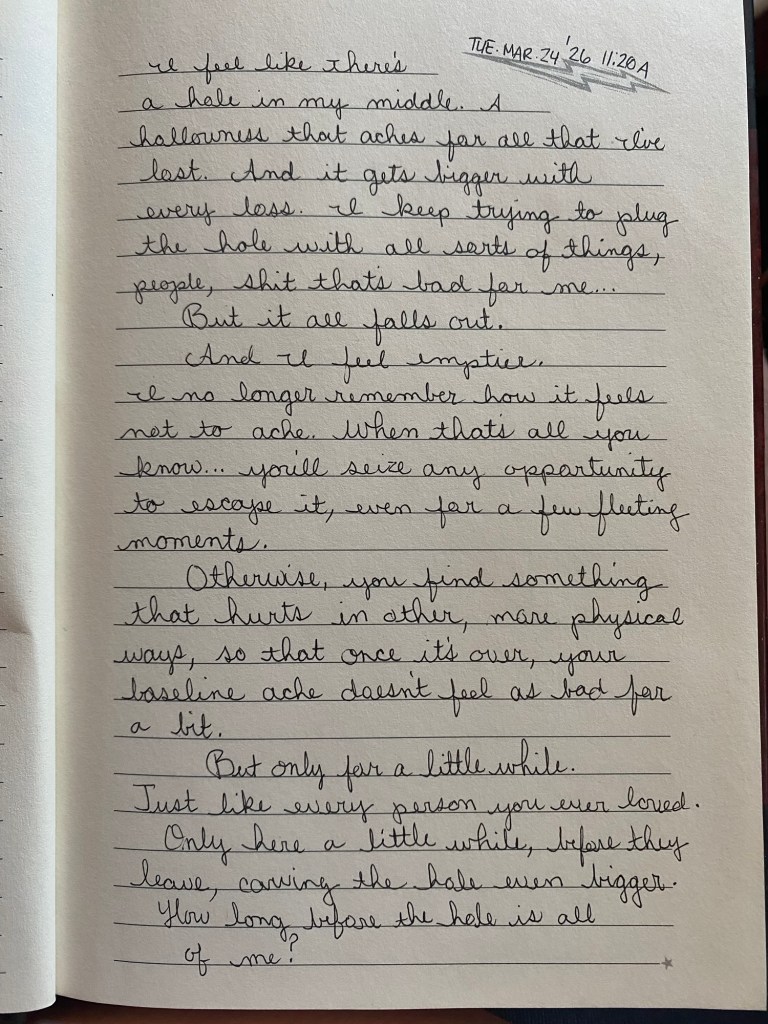 TUE. MAR. 24 '26 11:20A
I feel like there's
a hole in my middle. A
hallowness that aches for all that I've
lost. And it gets bigger with
every loss. I keep trying to plug
the hole with all sorts of things,
people, shit that's bad for me...
But it all falls out.
And I feel emptier.
I no longer remember how it feels
not to ache. When that's all you
know... you'll seize any opportunity
to escape it, even for a few fleeting
moments.
Otherwise, you find something
that hurts in other, more physical
ways, so that once it's over, your
baseline ache doesn't feel as bad for
a bit.
But only for a little while.
Just like every person you ever loved.
Only here a little while, before they
leave, carving the hole even bigger.
How long before the hole is all
of me?